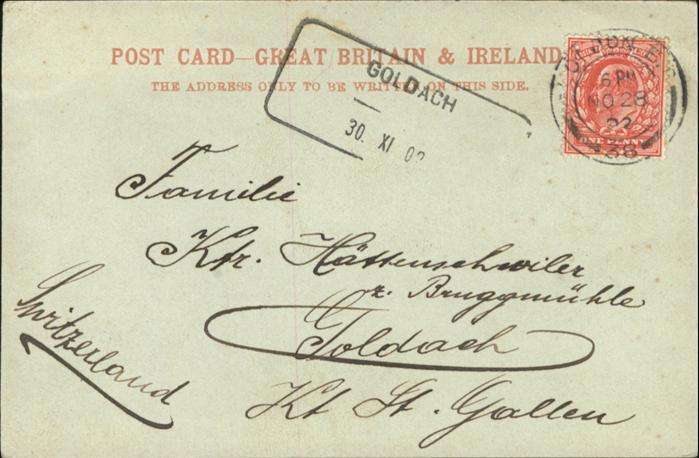 POST CARD—GREAT BRITAIN & IRELAND
THE ADDRESS ONLY TO BE WRITTEN ON THIS SIDE.
GOLDACH
30. XI 02
LONDON. E.C
6 PM
NO 28
02
ONE PENNY
Familie
Ktr. Hättenschwiler
z. Bruggmühle
Goldach
Kt St. Gallen
Switzerland